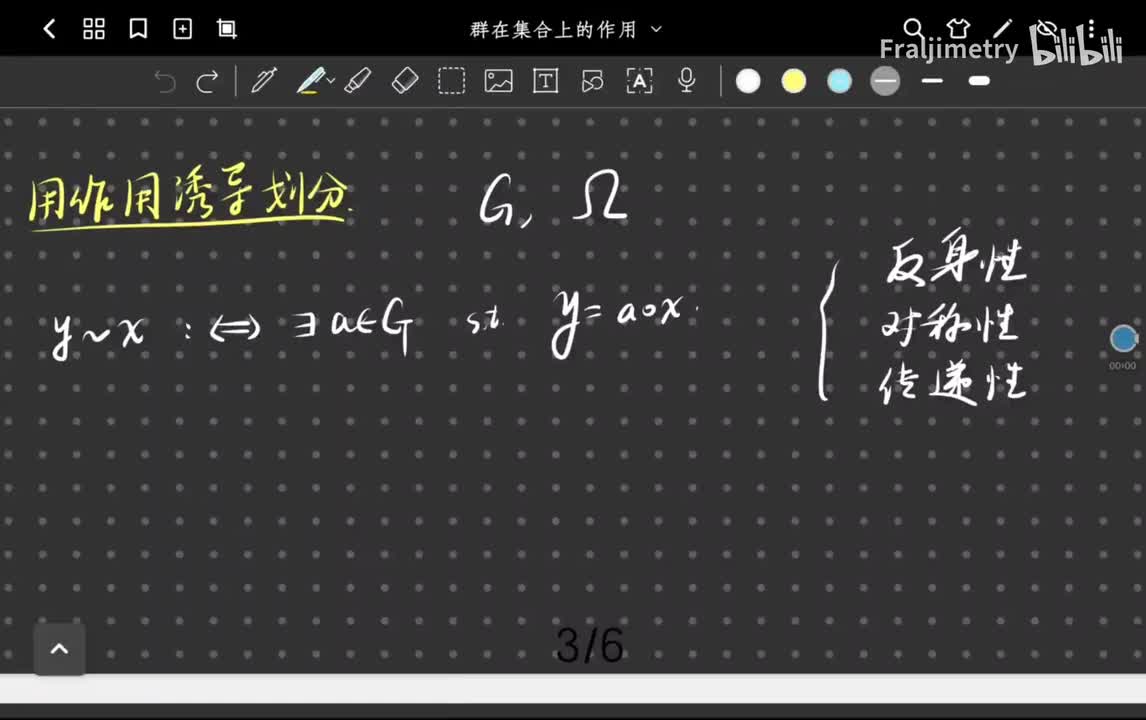 群在集合上的作用
Fraljimetry bilibili
用作用诱导划分.
G, Ω
y~x :⇔ ∃ a∈G s.t. y=a∘x.
反身性
对称性
传递性
00:00
3/6